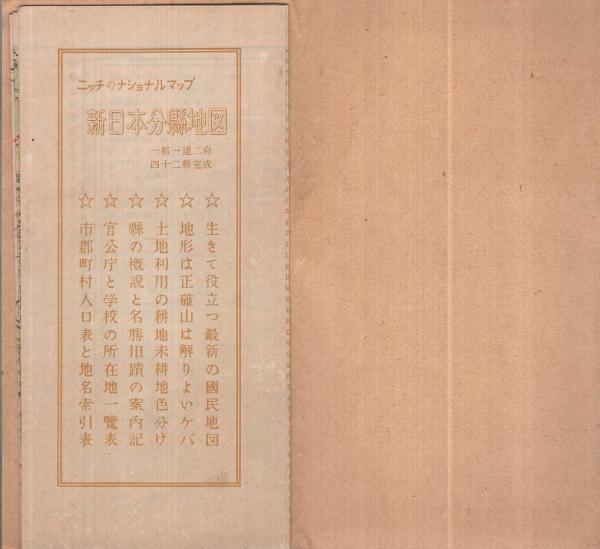 ニッチのナショナルマップ
新日本分縣地図
一都一道二府
四十二縣完成
☆ 生きて役立つ最新の國民地図
☆ 地形は正確山は解りよいケバ
☆ 土地利用の耕地未耕地色分け
☆ 縣の概説と名勝旧蹟の案内記
☆ 官公庁と学校の所在地一覽表
☆ 市郡町村人口表と地名索引表